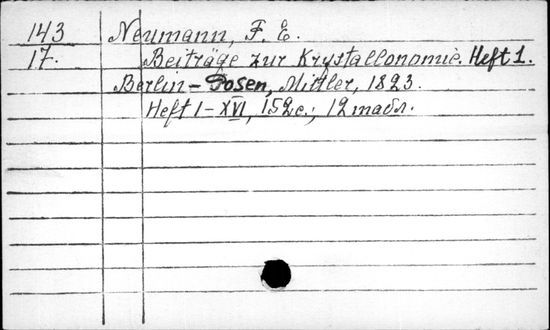 143 Neumann, F. E.
17. Beiträge zur Krystallonomie. Heft 1.
Berlin-Posen, Mittler, 1823.
Heft 1-XVI, 152c.; 12 табл.